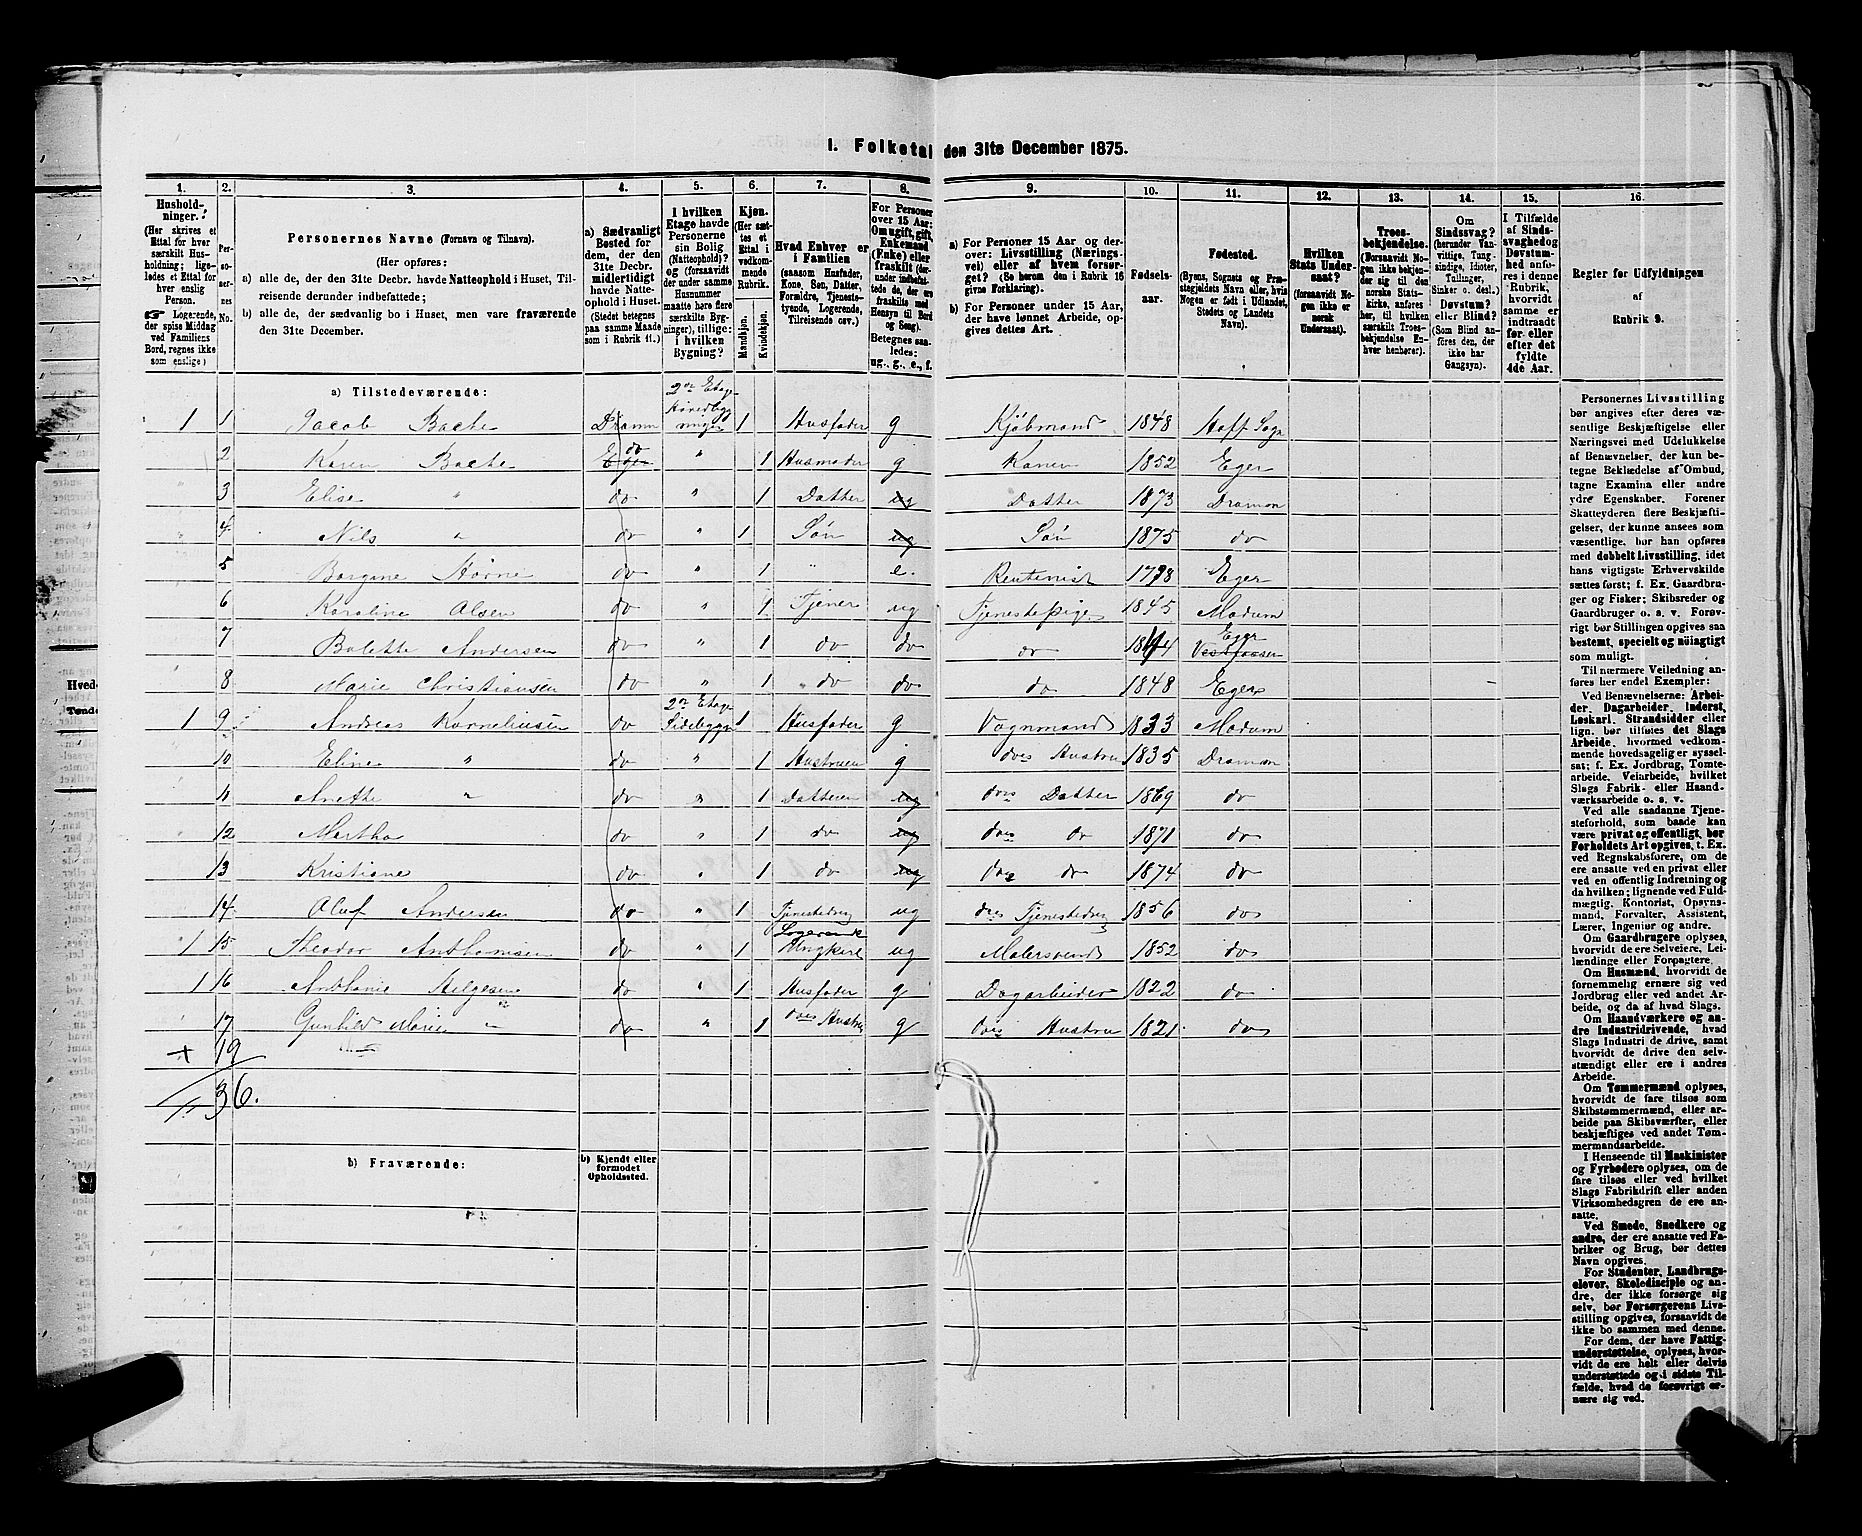 I. Folketal den 31te December 1875.
1. 2. 3. 4. 5. 6. 7. 8. 9. 10. 11. 12. 13. 14. 15. 16.
Hushold-
ninger.
(Her skrives et
Ettal for hver
særskilt Hus-
holdning; lige-
ledes et Ettal for
hver enslig
Person.
☛ Logerende,
der spise Middag
ved Familiens
Bord, regnes ikke
som enslige)
Per-
so-
ner-
nes
No.
Personernes Navne (Fornavn og Tilnavn).
(Her opføres:
a) alle de, der den 31te Decbr. havde Natteophold i Huset, Til-
reisende derunder indbefattede;
b) alle de, der sædvanlig bo i Huset, men vare fraværende
den 31te December.
a) Sædvanligt
Bosted for
dem, der den
31te Decbr.
midlertidigt
havde Natte-
ophold i Huset.
(Stedet betegnes
paa samme Maade
som i Rubrik 11.)
I hvilken
Etage havde
Personerne
sin Bolig
(Natteophold)?
og (forsaavidt
der under samme
Husnummer
maatte høre flere
særskilte Byg-
ninger), tillige:
i hvilken
Bygning?
Kjøn.
(Her sæt-
tes et
Ettal i
vedkom-
mende
Rubrik.
Mandkjøn.
Kvindekjøn.
Hvad Enhver er
i Familien
(saasom Husfader,
Kone, Søn, Datter,
Forældre, Tjeneste-
tyende, Logerende,
Tilreisende osv.)
For Personer
over 15 Aar:
Om ugift, gift,
Enkemand
(Enke) eller
fraskilt (der-
under indbefat-
tede de, der ere
fraskilte med
Hensyn til Bord
og Seng).
Betegnes saa-
ledes:
ug., g., e., f.
a) For Personer 15 Aar og der-
over: Livsstilling (Nærings-
vei) eller af hvem forsør-
get? (Se herom den i Rubrik 16
givne Forklaring).
b) For Personer under 15 Aar,
der have lønnet Arbeide, op-
gives dettes Art.
Fødsels-
aar.
Fødested.
(Byens, Sognets og Præ-
stegjeldets Navn eller, hvis
Nogen er født i Udlandet,
Stedets og Landets
Navn).
Hvilken
Stats Under-
saat?
(forsaavidt No-
gen ikke er
norsk
Undersaat).
Troes-
bekjendelse.
(Forsaavidt No-
gen ikke bekjen-
der sig til den
norske Stats-
kirke, anføres
her, til hvilken
særskilt Troes-
bekjendelse En-
hver henhører).
Om
Sindssvag?
(herunder Van-
vittige, Tung-
sindige, Idioter,
Tullinger,
Sinker o. desl.)
Døvstum?
eller Blind?
(Som Blind an-
føres den, der
ikke har
Gangsyn).
I Tilfælde
af Sinds-
svaghed og
Døvstum-
hed anfø-
res i denne
Rubrik,
hvorvidt
samme er
indtraadt
før eller
efter det
fyldte
4de Aar.
Regler for Udfyldningen
af
Rubrik 9.
a) Tilstedeværende:
2den Etage
Hovedbyg
1 1 Jacob Bache Dramn ningen 1 Husfader g Kjøbmand 1848 Hoff Sogn
2 Karen Bache Eger do " 1 Husmoder g Konen 1852 Eger
3 Elise " do " 1 Datter ug Datter 1873 Dramen
4 Nils " do " 1 Søn ug Søn 1875 do
5 Borgine Horne do " 1 " e. Rentenist 1798 Eger
6 Karoline Olsen do " 1 Tjener ug Tjenestepige 1845 Modum
7 Bolette Andersen do " 1 do do do 1844 Eger Vestfossen
8 Marie Christiansen do " 1 do do do 1848 Eger
2den Etage
1 9 Andreas Korneliusen do Sidebygn 1 Husfader g Vognmand 1833 Modum
10 Eline " do " 1 Hustruen g ds Hustru 1835 Dramen
11 Anette " do " 1 Datteren ug ds Datter 1869 do
12 Martha do " 1 do ug ds do 1871 do
13 Kristiane do " 1 do ug ds do 1874 do
14 Oluf Andersen do " 1 Tjenestedreng ug ds Tjenestedreng 1856 do
Logerende
1 15 Theodor Anthonisen do " 1 Ungkarl ug Malersvend 1852 do
1 16 Anthonie Helgesen do " 1 Husfader g Dagarbeider 1822 do
17 Gunhild Marie " do " 1 ds Hustru g ds Hustru 1821 do
+ 19
36.
b) Fraværende:
b) Kjendt eller
formodet
Opholdssted.
Personernes Livsstilling
bør angives efter deres væ-
sentlige Beskjæftigelse eller
Næringsvei med Udelukkelse
af Benævnelser, der kun be-
tegne Beklædelse af Ombud,
tagne Examina eller andre
ydre Egenskaber. Forener
Skatteyderen flere Beskjæfti-
gelser, der kunne ansees som
væsentlige, bør han opføres
med dobbelt Livsstilling, idet
hans vigtigste Erhvervskilde
sættes først; f. Ex. Gaardbru-
ger og Fisker; Skibsreder og
Gaardbruger o. s. v. Forøv-
rigt bør Stillingen opgives saa
bestemt, specielt og nøiagtigt
som muligt.
Til nærmere Veiledning an-
føres her endel Exempler:
Ved Benævnelserne: Arbei-
der, Dagarbeider, Inderst,
Løskarl, Strandsidder eller
lign. bør tilføies det Slags
Arbeide, hvormed vedkom-
mende hovedsagelig er syssel-
sat; f. Ex. Jordbrug, Tomte-
arbeide, Veiarbeide, hvilket
Slags Fabrik- eller Haand-
værksarbeide o. s. v.
Ved alle saadanne Tjene-
steforhold, som baade kan
være privat og offentligt, bør
Forholdets Art opgives, t. Ex.
ved Regnskabsførere, om de
ere ansatte ved en privat eller
ved en offentlig Indretning og
da hvilken; lignende ved Fuld-
mægtig, Kontorist, Opsyns-
mand, Forvalter, Assistent,
Lærer, Ingeniør og andre.
Om Gaardbrugere oplyses,
hvorvidt de ere Selveiere, Lei-
lændinge eller Forpagtere.
Om Husmænd, hvorvidt de
fornemmelig ernære sig ved
Jordbrug eller ved andet Ar-
beide, og da af hvad Slags.
Om Haandværkere og an-
dre Industridrivende, hvad
Slags Industri de drive, samt
hvorvidt de drive den selv-
stændigt eller ere i andres
Arbeide.
Om Tømmermænd oplyses,
hvorvidt de fare tilsøs som
Skibstømmermænd, eller ar-
beide paa Skibsværfter, eller
beskjæftiges ved andet Tøm-
mermandsarbeide.
I Henseende til Maskinister
og Fyrbødere oplyses, om de
fare tilsøs eller ved hvilket
Slags Fabrikdrift eller anden
Virksomhedsgren de ere an-
satte.
Ved Smede, Snedkere og
andre, der ere ansatte ved Fa-
briker og Brug, bør dettes
Navn opgives.
For Studenter, Landbrugs-
elever, Skoledisciple og an-
dre, der ikke forsørge sig
selv, bør Forsørgerens Livs-
stilling opgives, forsaavidt de
ikke bo sammen med denne.
For dem, der have Fattig-
understøttelse, oplyses, hvor-
vidt de ere helt eller delvis
understøttede og i sidste Til-
fælde, hvad de forøvrigt er-
nære sig ved.